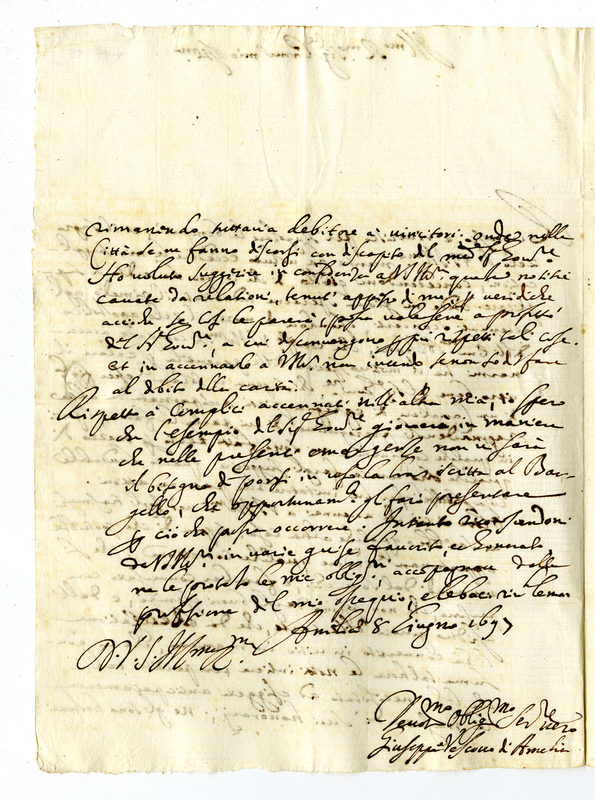 rimanendo tuttavia debitore a vincitori onde nelle
Città se ne fanno discorsi con discapito del med.º
Ho voluto suggerire in confidenza a V.S. queste notitie
cavate da relationi tenute appresso di me veridiche
acciò che se Le parerà possa valersene a profitto
del a cui disconvengono rispetti tal cose.
et in accennarlo a V.S. non intendo se non sodisfare
al debito della carità.
Rispetto a Complici accennati nell'altra mia, io spero
che l'esempio del Sig.r gioverà in maniera
che nelle presenti emergenze non vi sarà
il bisogno di porsi in uso la scritta al Bar-
gello, che opportunam.te gli farò presentare
p ciò che possa occorrere. Intanto riconoscendomi
da V.S. in varie guise favorito, et honorato
ne le protesto le mie oblig.ni, accompagnate dalle
professione del mio ossequio, e le bacio le mani
Amelia 8 Giugno 1697
D. V. S. Ill.ma
Devot.mo Oblig.mo Ser.re vero
Giuseppe Vescovo di Amelia